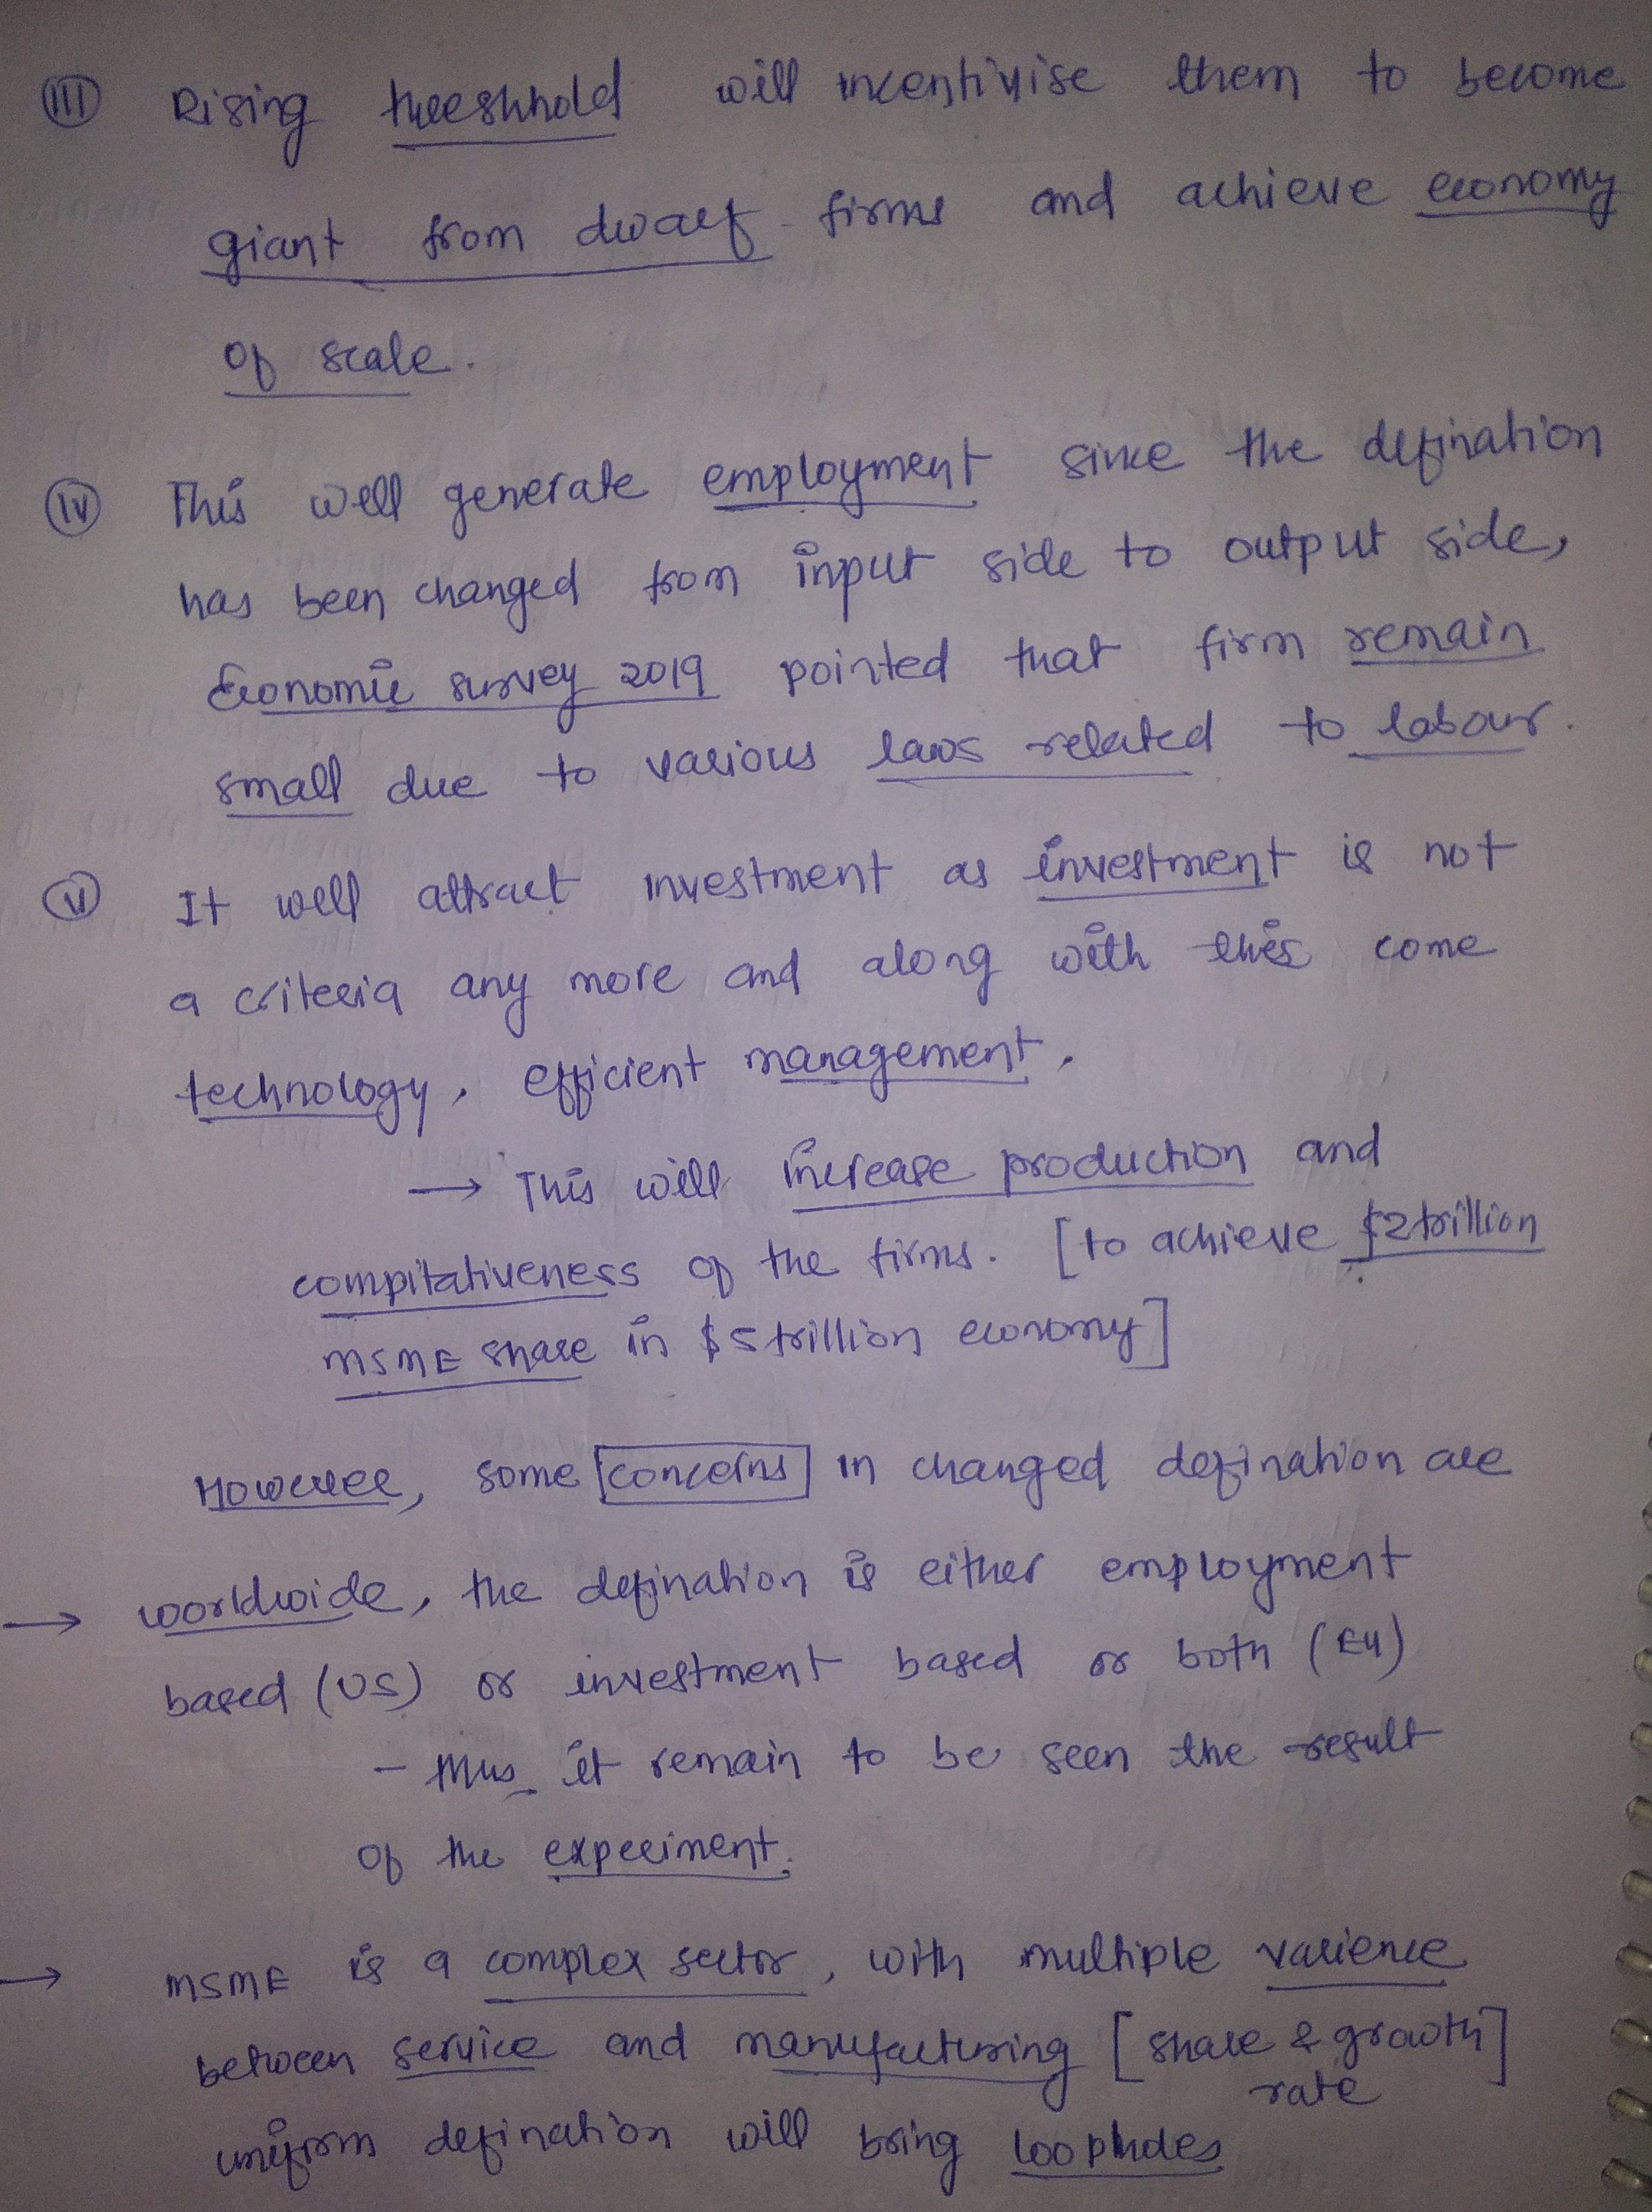 (III) Rising threeshhold will incentivise them to become
giant from dwarf firms and achieve economy
of scale.
(IV) This will generate employment since the defination
has been changed from input side to output side,
Economic survey 2019 pointed that firm remain
small due to various laws related to labour.
(V) It will attract investment as investment is not
a criteria any more and along with this come
technology, efficient management.
→ This will increase production and
compitativeness of the firms. [to achieve $2 trillion
MSME share in $5 trillion economy]
However, some concerns in changed defination are
→ worldwide, the defination is either employment
based (US) or investment based or both (EU)
- thus it remain to be seen the result
of the experiment.
→ MSME is a complex sector, with multiple varience
between service and manufacturing [share & growth]
rate
uniform defination will bring loopholes